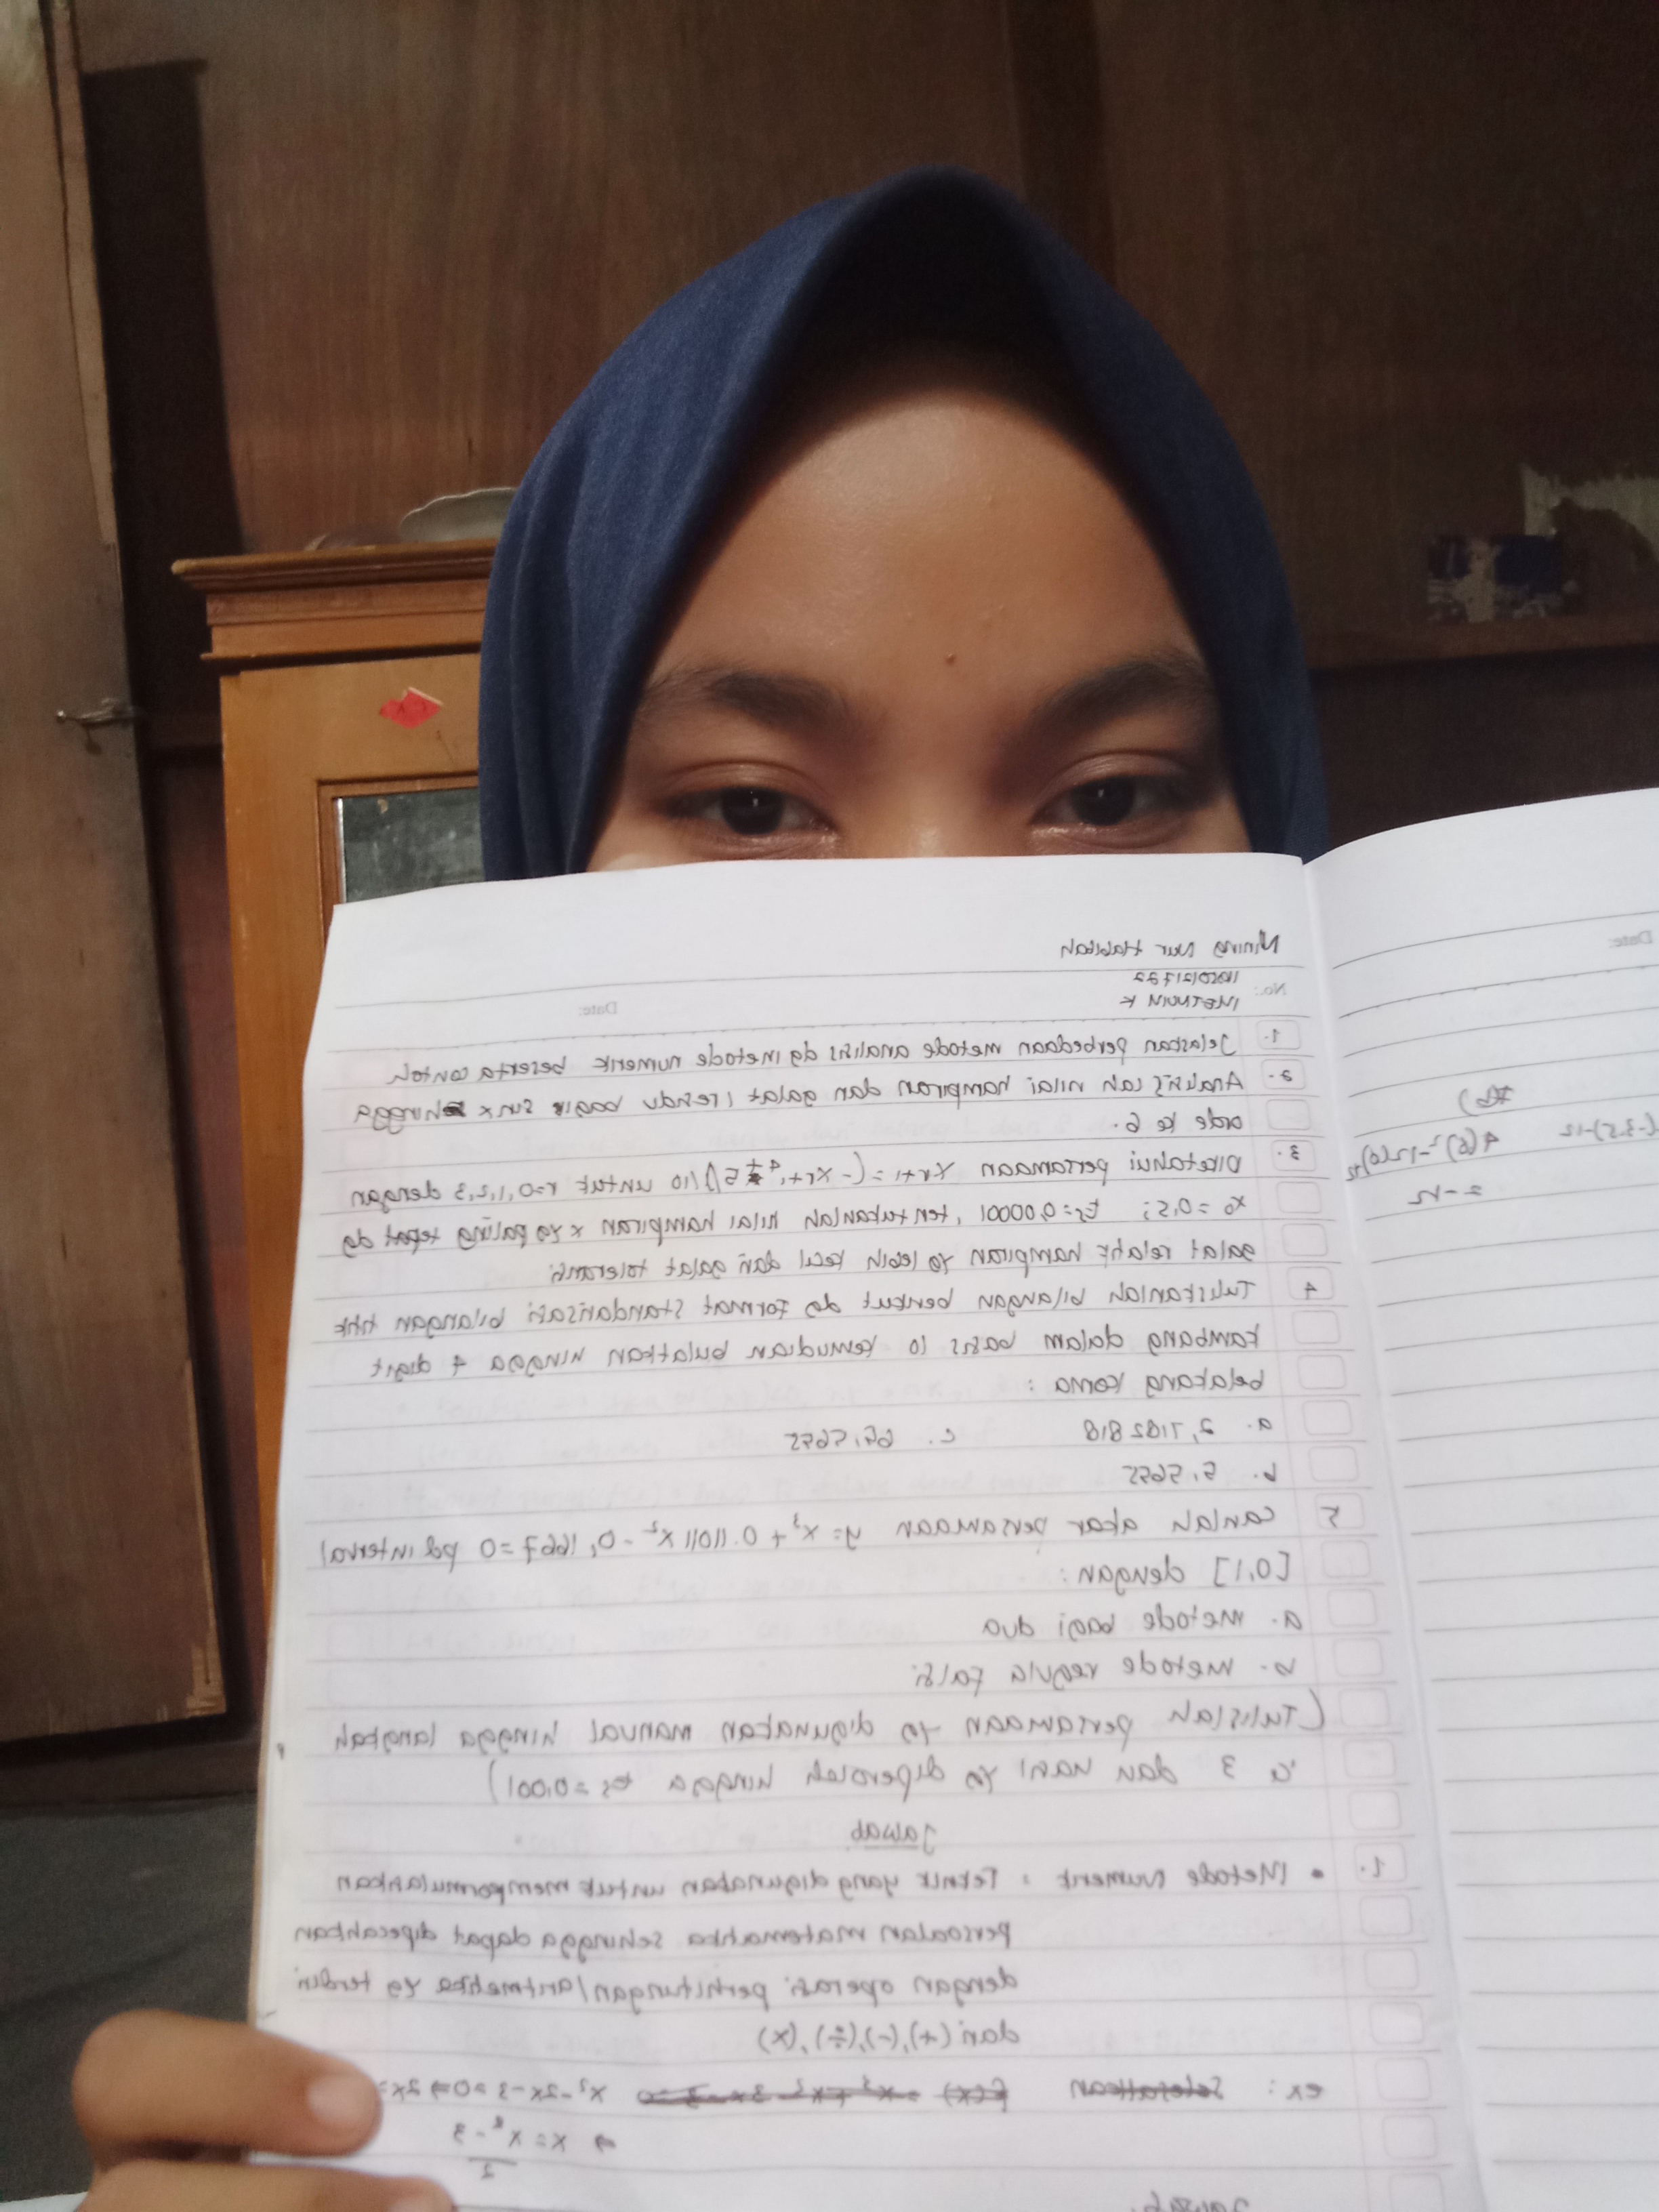 Nining Nur Habibah
No.:
Date:
METNUM K
1. Jelaskan perbedaan metode analisis dg metode numerik beserta contoh
2. Analisislah nilai hampiran dan galat / residu bagi sin x hingga
orde ke 6.
3. Diketahui persamaan xr+1 = (-xr+1⁴+5)/10 untuk r=0,1,2,3 dengan
x₀ = 0,5; εs=0,00001, tentukanlah nilai hampiran x yg paling tepat dg
galat relatif hampiran yg lebih kecil dari galat toleransi
4 Tuliskanlah bilangan berikut dg format standarisasi bilangan titik
kambang dalam basis 10 kemudian bulatkan hingga 4 digit
belakang koma :
a. 2,7182818 c. 65,5655
b. 5,5655
5 Carilah akar persamaan y= x³ + 0.11011 x² - 0,1667 = 0 pd interval
[0,1] dengan :
a. metode bagi dua
b. metode regula falsi
(Tulislah persamaan yg digunakan manual hingga langkah
3 dan hasil yg diperoleh hingga εs =0,001)
Jawab
1. • Metode numerik : Teknik yang digunakan untuk memformulasikan
persoalan matematika sehingga dapat dipecahkan
dengan operasi perhitungan/aritmetika yg terdiri
dari (+),(-),(÷),(x)
ex : x²-2x-3 =0 ⇒ 2x=
⇒ x = x²-3
2
Date:
4(6)²-12(6)